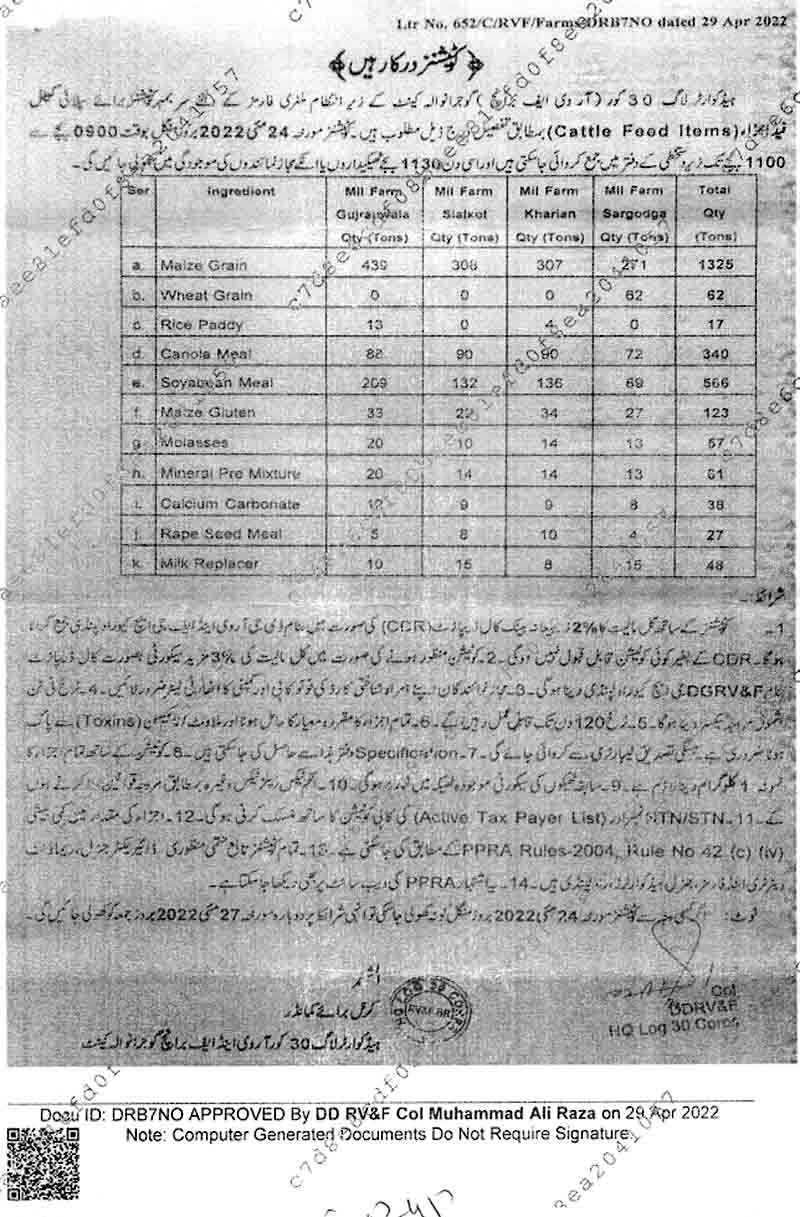 Ltr No. 652/C/RVF/Farms/DRB7NO dated 29 Apr 2022
﴿کوٹیشنز درکار ہیں﴾
ہیڈکوارٹر لاگ 30 کور (آر وی ایف برانچ) گوجرانوالہ کینٹ کے زیر انتظام ملٹری فارمز کے لئے سر بمہر کوٹیشنز برائے سپلائی کیٹل
فیڈ اجزاء (Cattle Feed Items) بمطابق تفصیل درج ذیل مطلوب ہیں۔ کوٹیشنز مورخہ 24 مئی 2022 بروز منگل بوقت 0900 بجے سے
1100 بجے تک زیر دستخطی کے دفتر میں جمع کروائی جا سکتی ہیں اور اسی دن 1130 بجے ٹھیکیداروں یا انکے مجاز نمائندوں کی موجودگی میں کھولی جائیں گی۔
Ser Ingredient Mil Farm Gujranwala Qty (Tons) Mil Farm Sialkot Qty (Tons) Mil Farm Kharian Qty (Tons) Mil Farm Sargodga Qty (Tons) Total Qty (Tons)
a. Maize Grain 439 308 307 271 1325
b. Wheat Grain 0 0 0 62 62
c. Rice Paddy 13 0 4 0 17
d. Canola Meal 88 90 90 72 340
e. Soyabean Meal 209 132 136 89 566
f. Maize Gluten 33 29 34 27 123
g. Molasses 20 10 14 13 57
h. Mineral Pre Mixture 20 14 14 13 61
i. Calcium Carbonate 12 9 9 8 38
j. Rape Seed Meal 5 8 10 4 27
k. Milk Replacer 10 15 8 15 48
شرائط:۔
1۔ کوٹیشنز کے ساتھ کل مالیت کا 2% زر بیعانہ بینک کال ڈیپازٹ (CDR) کی صورت میں بنام ڈی جی آر وی اینڈ ایف، جی ایچ کیو راولپنڈی جمع کرانا
ہوگا۔ CDR کے بغیر کوئی کوٹیشن قابل قبول نہیں ہوگی۔ 2۔ کوٹیشن منظور ہونے کی صورت میں کل مالیت کی 3% مزید سیکورٹی بصورت کال ڈیپازٹ
بنام DGRV&F جی ایچ کیو راولپنڈی دینا ہوگی۔ 3۔ مجاز نمائندگان اپنے ہمراہ شناختی کارڈ کی فوٹو کاپی اور کمپنی کا اتھارٹی لیٹر ضرور لائیں۔ 4۔ نرخ فی ٹن
بشمول مروجہ ٹیکسز دینا ہوگا۔ 5۔ نرخ 120 دن تک قابل عمل رہیں گے۔ 6۔ تمام اجزاء کا مقررہ معیار کا حامل ہونا اور ملاوٹ / ٹاکسن (Toxins) سے پاک
ہونا ضروری ہے جسکی تصدیق لیبارٹری سے کروائی جائے گی۔ 7۔ Specification دفتر ہذا سے حاصل کی جا سکتی ہیں۔ 8۔ کوٹیشن کے ساتھ تمام اجزاء کا
نمونہ 1 کلوگرام دینا لازم ہے۔ 9۔ سابقہ ٹھیکوں کی سیکورٹی موجودہ ٹھیکہ میں قبول نہ ہوگی۔ 10۔ انکم ٹیکس، سیلز ٹیکس وغیرہ بمطابق مروجہ قوانین ادا کرنے ہوں
گے۔ 11۔ NTN/STN نمبر اور (Active Tax Payer List) کی کاپی کوٹیشن کے ساتھ منسلک کرنی ہوگی۔ 12۔ اجزاء کی مقدار میں کمی بیشی
PPRA Rules-2004, Rule No 42 (c) (iv) کے مطابق کی جا سکتی ہے۔ 13۔ تمام کوٹیشنز تابع حتمی منظوری ڈائریکٹر جنرل، ریماؤنٹ
ویٹرنری اینڈ فارمز، جنرل ہیڈکوارٹرز، راولپنڈی ہیں۔ 14۔ یہ اشتہار PPRA کی ویب سائٹ پر بھی دیکھا جا سکتا ہے۔
نوٹ: اگر کسی وجہ سے کوٹیشنز مورخہ 24 مئی 2022 بروز منگل کو نہ کھولی جا سکی تو انہی شرائط پر دوبارہ مورخہ 27 مئی 2022 بروز جمعہ کو کھولی جائیں گی۔
المشتہر
کرنل برائے کمانڈر
ہیڈکوارٹر لاگ 30 کور آر وی اینڈ ایف برانچ گوجرانوالہ کینٹ
HQ LOG 30 CORPS
RV&F BR
Col
DDRV&F
HQ Log 30 Corps
Docu ID: DRB7NO APPROVED By DD RV&F Col Muhammad Ali Raza on 29 Apr 2022
Note: Computer Generated Documents Do Not Require Signature.